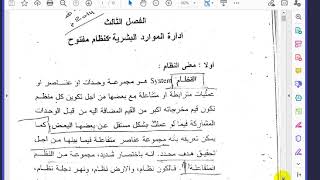 الفصل الثالث
ادارة الموارد البشرية كنظام مفتوح
اولا : معنى النظام :
النظام System هو مجموعة وحدات او عناصر او
عمليات مترابطة او متفاعلة مع بعضها من اجل تكوين كل منظم
تكون قيم مخرجاته اكبر من القيم المضافة اليه من قبل الوحدات
المشاركة فيما لو عملت بشكل مستقل عن بعضها البعض كما
يمكن تعريفه بأنه مجموعة عناصر متفاعلة فيما بينها من اجل
تحقيق هدف محدد. انه باختصار شديد، مجموعة من النظم
المتفاعلة فالكون نظام، والارض نظام، ونهر دجلة نظام،